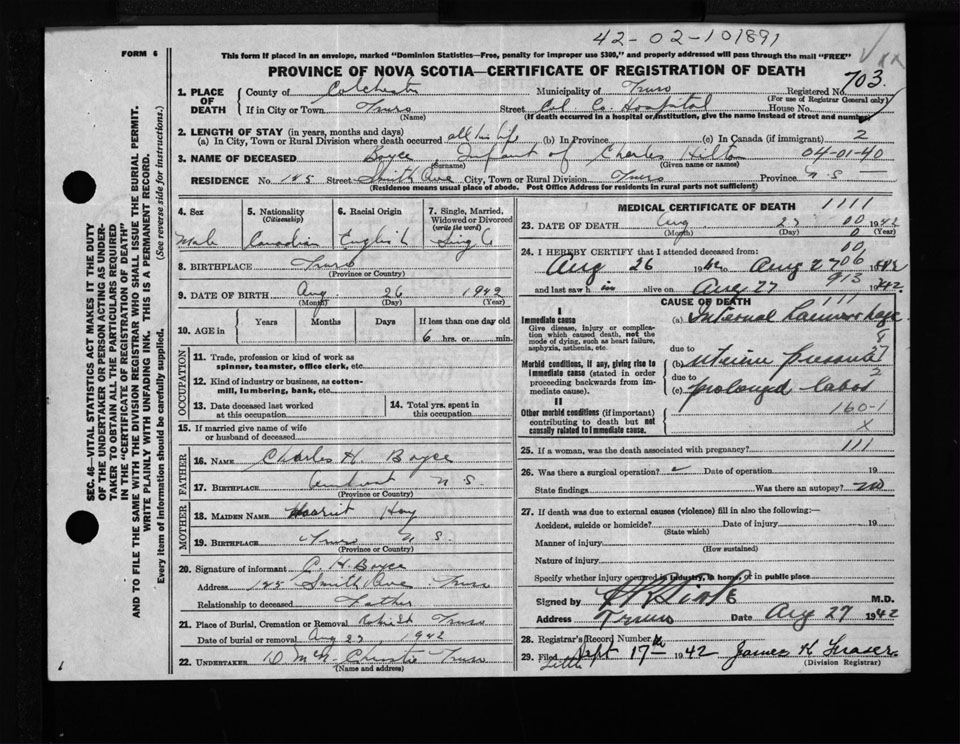 42-02-101891
FORM 6
This form if placed in an envelope, marked "Dominion Statistics—Free, penalty for improper use $300," and properly addressed will pass through the mail "FREE"
PROVINCE OF NOVA SCOTIA—CERTIFICATE OF REGISTRATION OF DEATH
703
1. PLACE OF DEATH
County of Colchester Municipality of Truro Registered No.
(For use of Registrar General only)
If in City or Town Truro Street Col. Co. Hospital House No.
(Name) (If death occurred in a hospital or institution, give the name instead of street and number)
2. LENGTH OF STAY (in years, months and days)
(a) In City, Town or Rural Division where death occurred all his life (b) In Province (c) In Canada (if immigrant) 2
3. NAME OF DECEASED Boyce, Infant of Charles Hilton 04-01-40
(Surname) (Given name or names)
RESIDENCE No. 185 Street Smith Ave City, Town or Rural Division Truro Province N S
(Residence means usual place of abode. Post Office Address for residents in rural parts not sufficient)
SEC. 46—VITAL STATISTICS ACT MAKES IT THE DUTY
OF THE UNDERTAKER OR PERSON ACTING AS UNDERTAKER TO OBTAIN ALL THE PARTICULARS REQUIRED
IN THE "CERTIFICATE OF REGISTRATION OF DEATH"
AND TO FILE THE SAME WITH THE DIVISION REGISTRAR WHO SHALL ISSUE THE BURIAL PERMIT.
WRITE PLAINLY WITH UNFADING INK. THIS IS A PERMANENT RECORD.
Every item of information should be carefully supplied. (See reverse side for instructions.)
4. Sex
Male
5. Nationality
(Citizenship)
Canadian
6. Racial Origin
English
7. Single, Married, Widowed or Divorced
(write the word)
Single
8. BIRTHPLACE Truro
(Province or Country)
9. DATE OF BIRTH Aug. 26 1942
(Month) (Day) (Year)
10. AGE in
Years Months Days If less than one day old
6 hrs. or min.
OCCUPATION
11. Trade, profession or kind of work as spinner, teamster, office clerk, etc.
12. Kind of industry or business, as cotton-mill, lumbering, bank, etc.
13. Date deceased last worked at this occupation
14. Total yrs. spent in this occupation
15. If married give name of wife or husband of deceased
FATHER
16. NAME Charles H. Boyce
17. BIRTHPLACE Amherst N S.
(Province or Country)
MOTHER
18. MAIDEN NAME Harriet Hay
19. BIRTHPLACE Truro N S.
(Province or Country)
20. Signature of informant C. H. Boyce
Address 185 Smith Ave Truro
Relationship to deceased Father
21. Place of Burial, Cremation or Removal Robie St Truro
Date of burial or removal Aug 27, 1942
22. UNDERTAKER Christie Truro
(Name and address)
MEDICAL CERTIFICATE OF DEATH 1111
23. DATE OF DEATH Aug 27 00 1942
(Month) (Day) 0 (Year)
24. I HEREBY CERTIFY that I attended deceased from: 00
Aug 26 1942 to Aug 27 06
and last saw h im alive on Aug 27 913 1942.
CAUSE OF DEATH 111
I
Immediate cause
Give disease, injury or complication which caused death, not the mode of dying, such as heart failure, asphyxia, asthenia, etc.
(a) Internal haemorrhage
8
due to 27
Morbid conditions, if any, giving rise to immediate cause (stated in order proceeding backwards from immediate cause).
(b) Uterine pressure
due to 2
(c) prolonged labor
II
Other morbid conditions (if important) contributing to death but not causally related to immediate cause.
160-1
x
25. If a woman, was the death associated with pregnancy? 111
26. Was there a surgical operation? Date of operation 19
State findings Was there an autopsy? no
27. If death was due to external causes (violence) fill in also the following:—
Accident, suicide or homicide? Date of injury 19
(State which)
Manner of injury
(How sustained)
Nature of injury
Specify whether injury occurred in industry, in home, or in public place
Signed by M.D.
Address Truro Date Aug 27 1942
28. Registrar's Record Number
29. Filed Sept 17th 1942 James K Fraser
(Division Registrar)